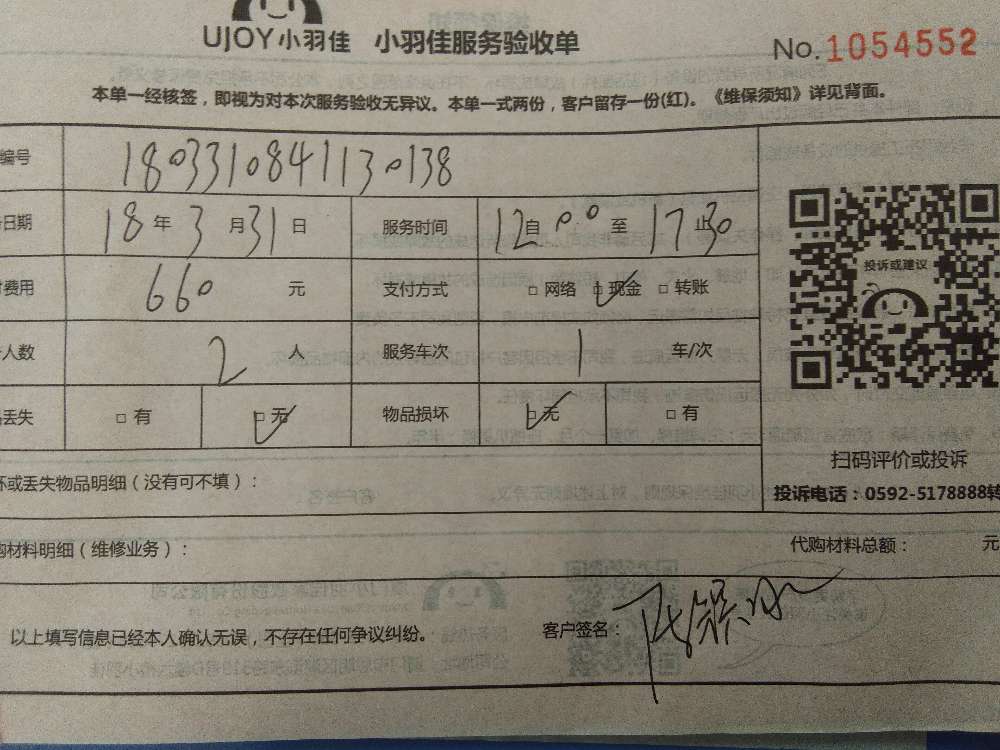 UJOY小羽佳 小羽佳服务验收单 No. 1054552
本单一经核签，即视为对本次服务验收无异议。本单一式两份，客户留存一份(红)。《维保须知》详见背面。
编号 1803310841130138
日期 18 年 3 月 31 日 服务时间 12 自 00 至 17 止 30
费用 660 元 支付方式 □ 网络 □ 现金 □ 转账
人数 2 人 服务车次 1 车/次
丢失 □ 有 □ 无 物品损坏 □ 无 □ 有
投诉或建议
扫码评价或投诉
坏或丢失物品明细（没有可不填）：
投诉电话：0592-5178888转
购材料明细（维修业务）： 代购材料总额： 元
以上填写信息已经本人确认无误，不存在任何争议纠纷。 客户签名：